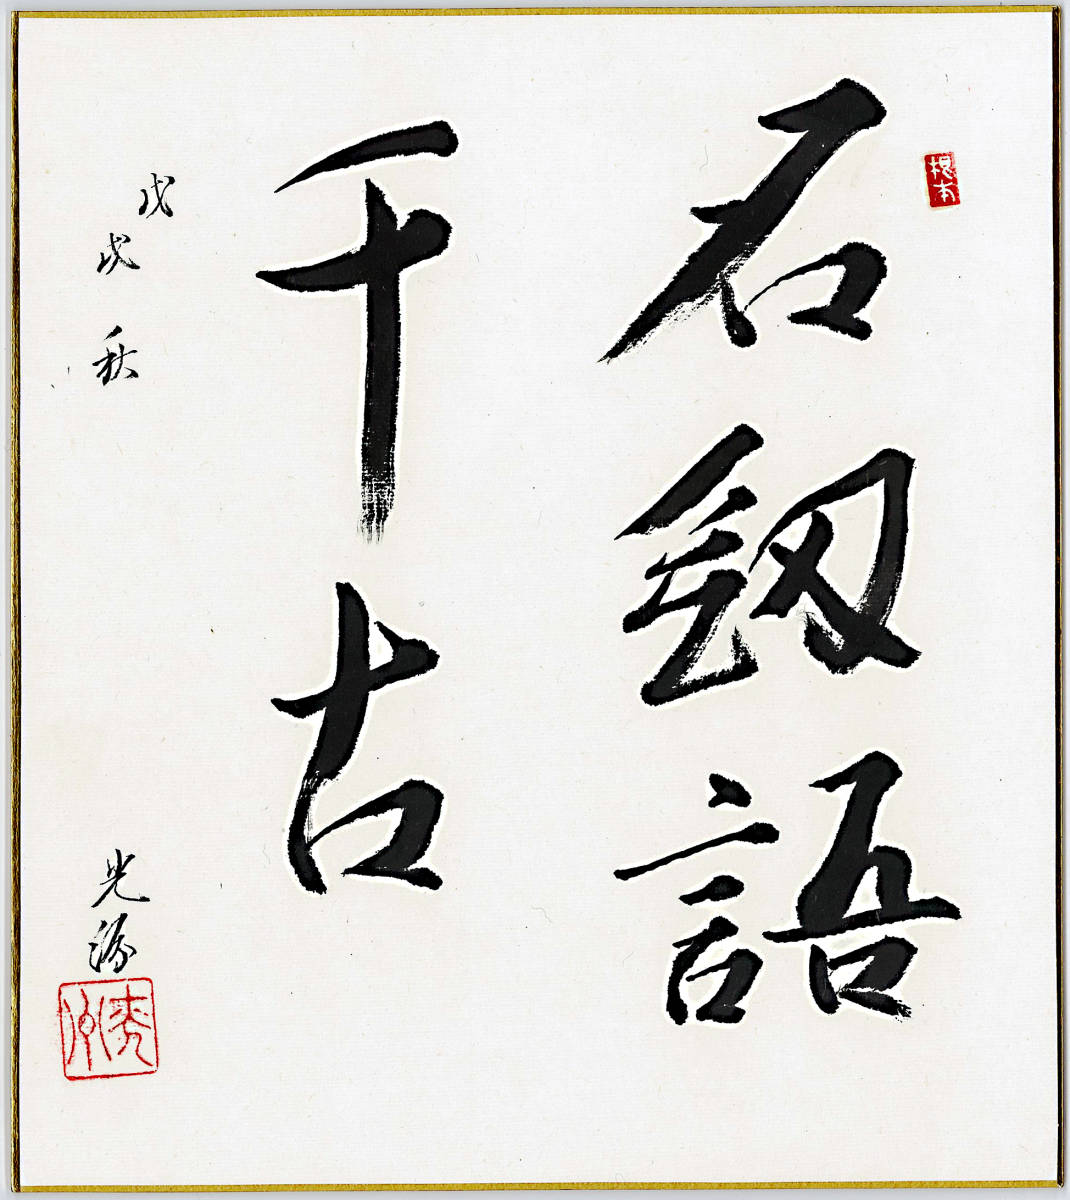 根本
石釼語
千古
戊戌秋
光源